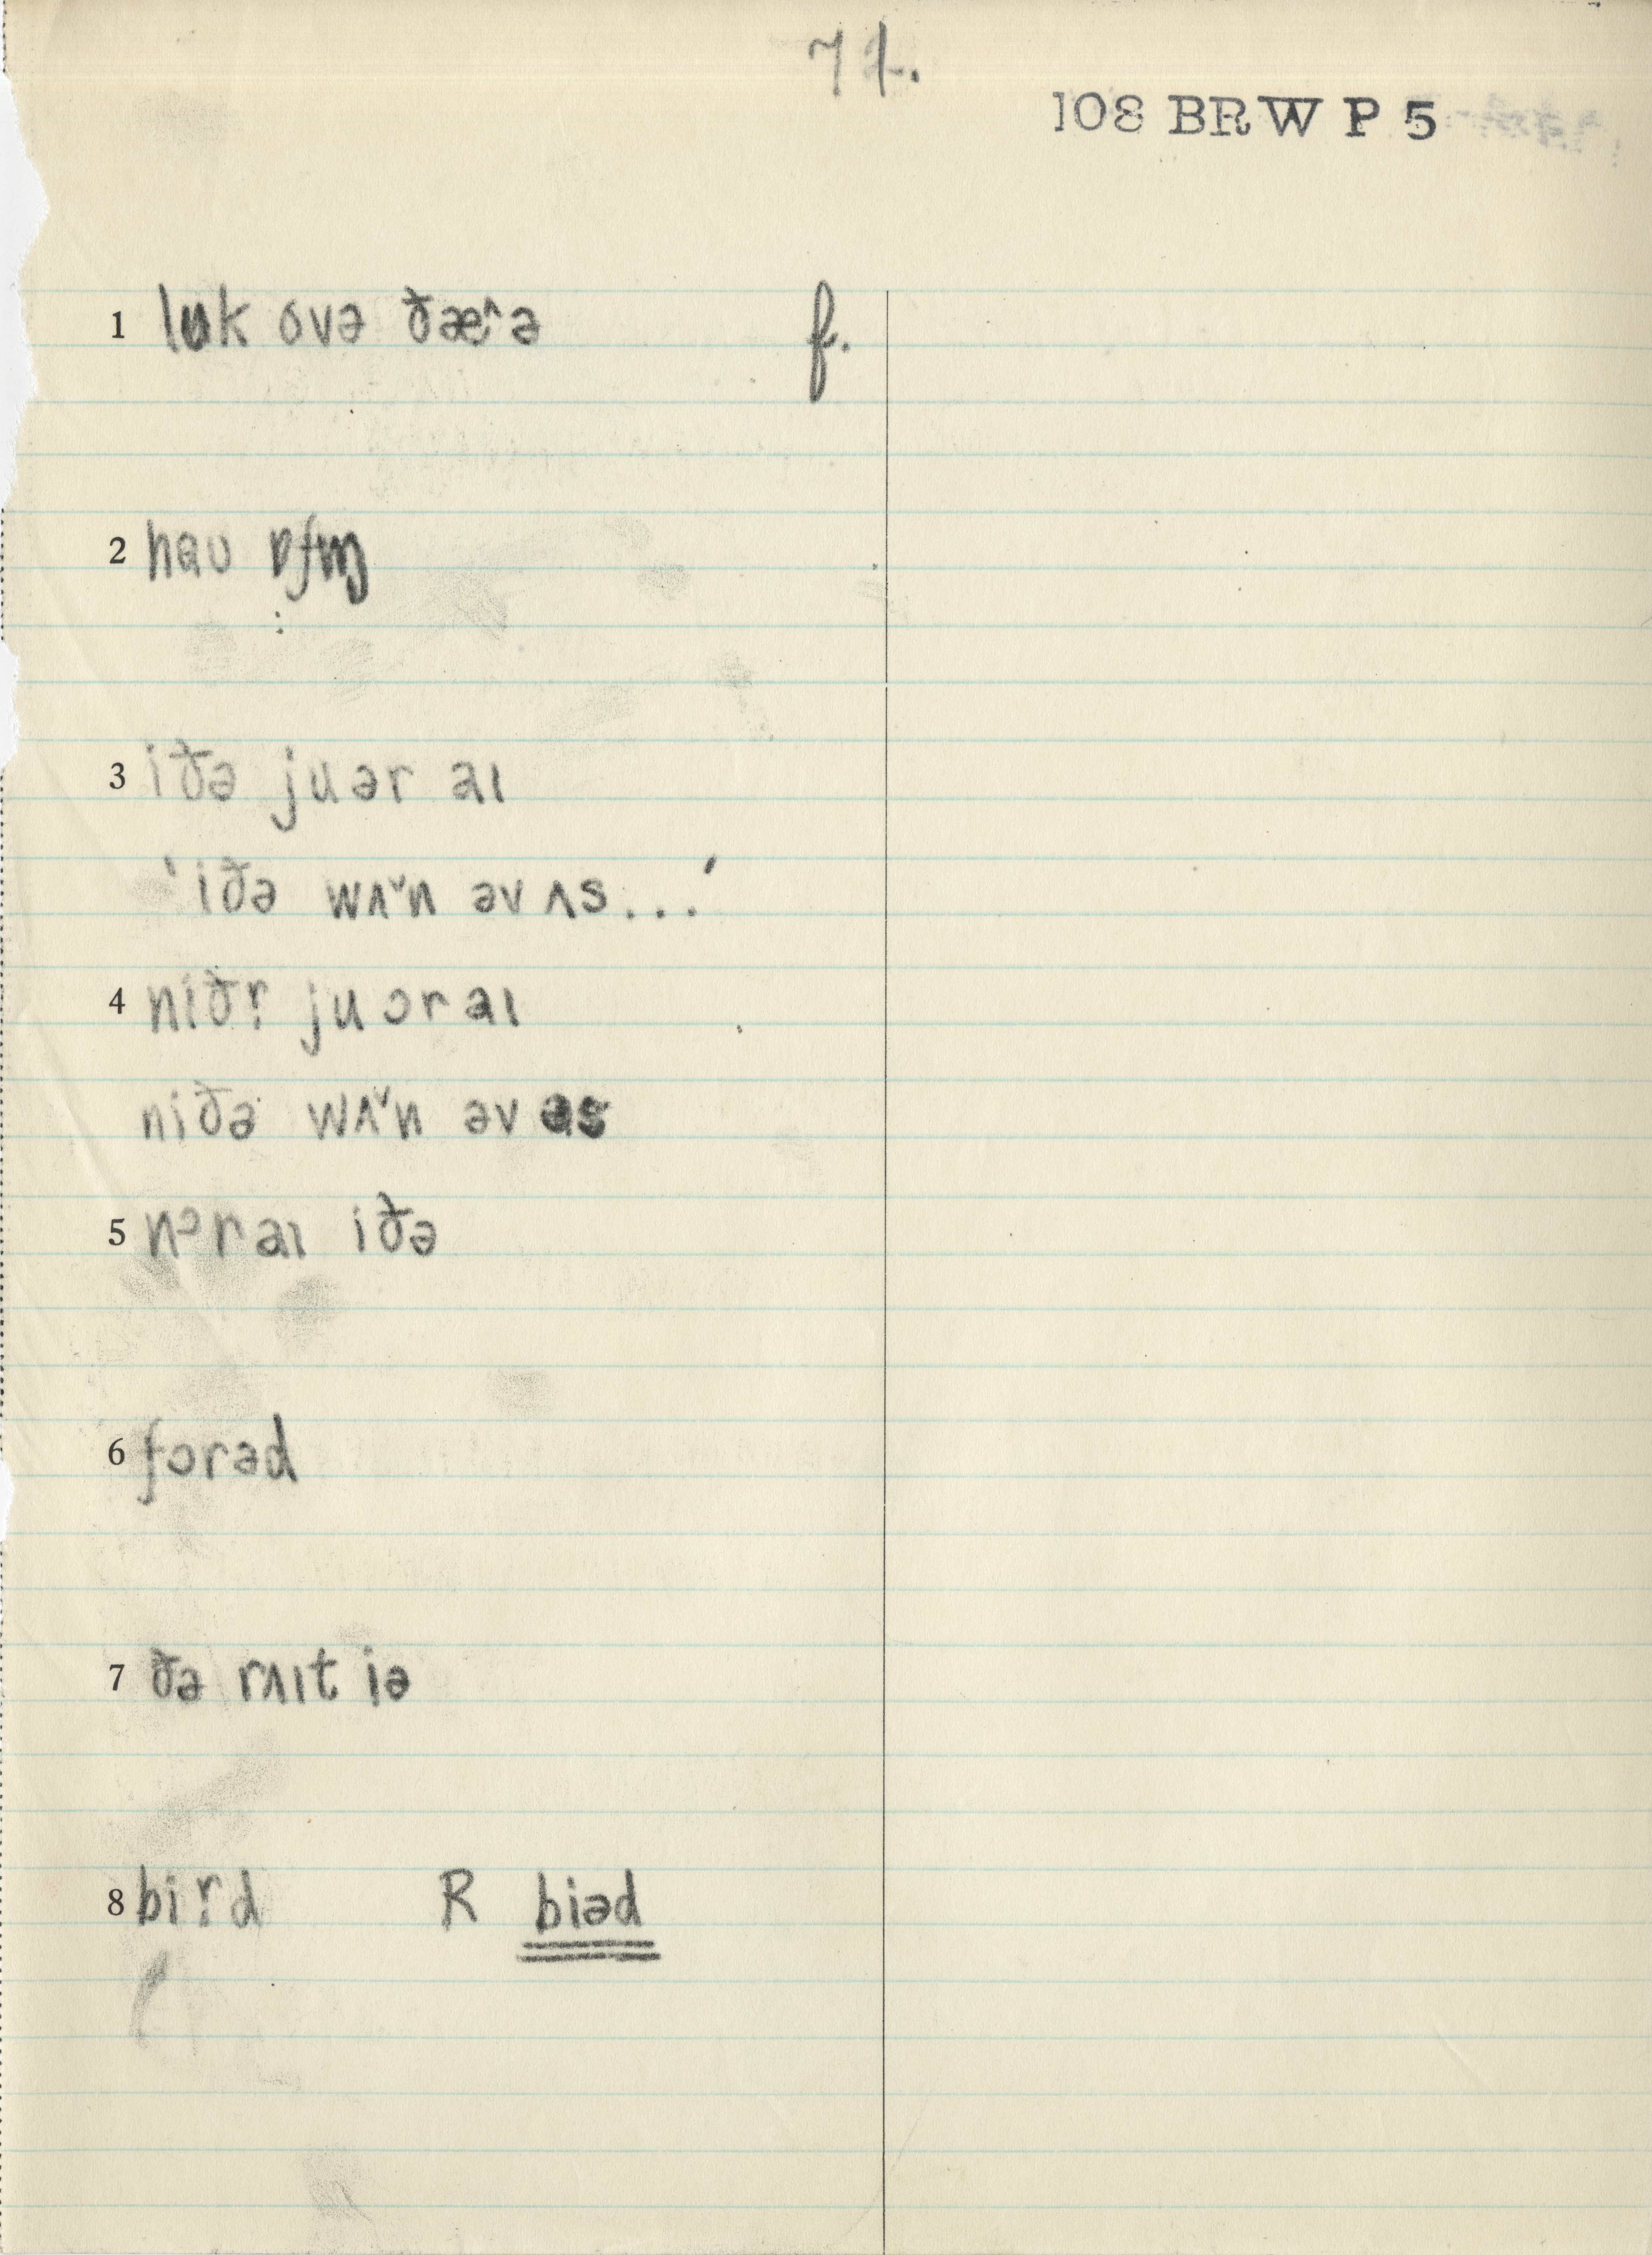 71.
108 BRW P 5
1 lʊk ovə ðæ^ə f.
2 haʊ ɒfṃ
3 iðə juər aɪ
'iðə wʌ˅n əv ʌs...'
4 niðr̩ juɔr aɪ
niðə wʌ˅n əv əs
5 nɔr aɪ iðə
6 fɔrəd
7 ðə rʌɪt iə
8 bir̩d R biəd